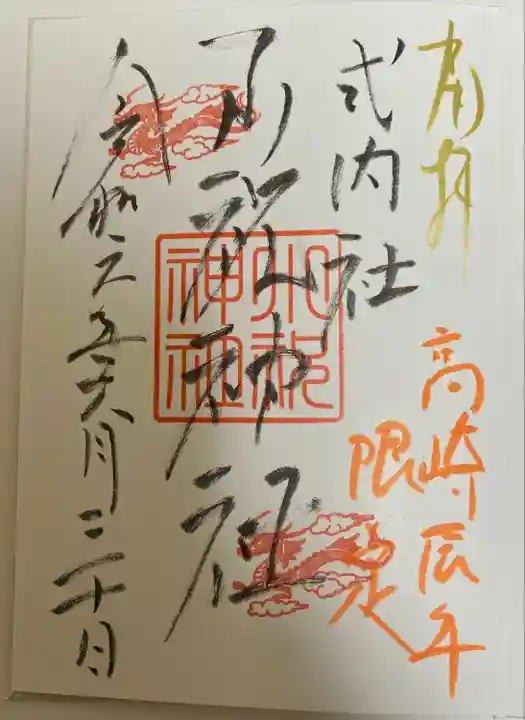 奉拝
高崎辰年
限定
式内社
小祝神社
令和六年六月三十日
小祝
神社